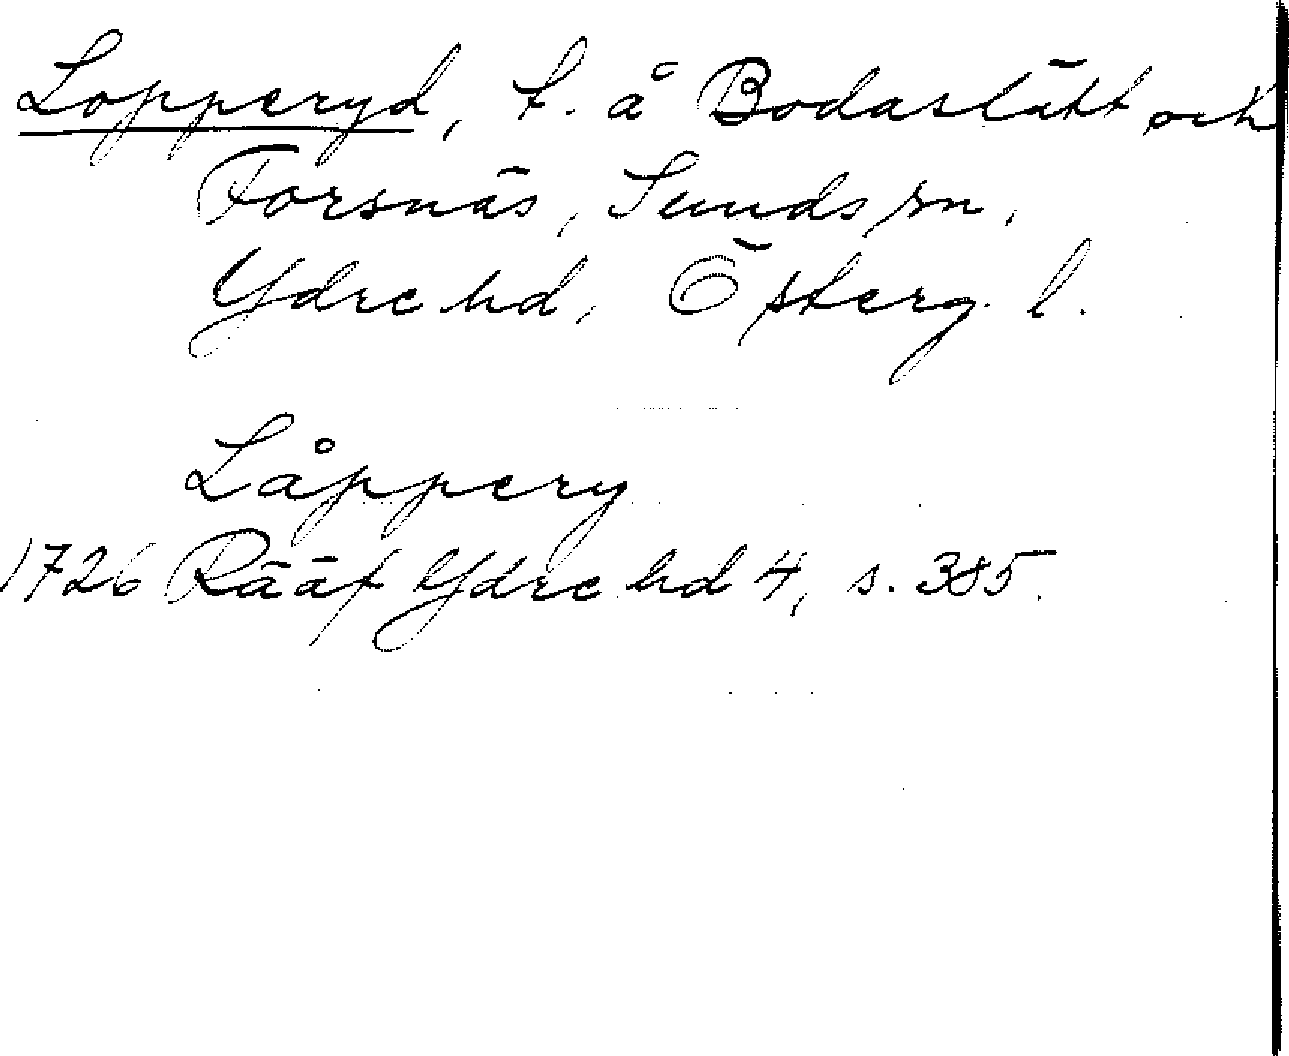 Lopperyd, t. å Bodaslätt och
Forsnäs, Sunds sn,
Ydre hd, Österg. l.
Låppery
1726 Rääf Ydre hd 4, s. 385.